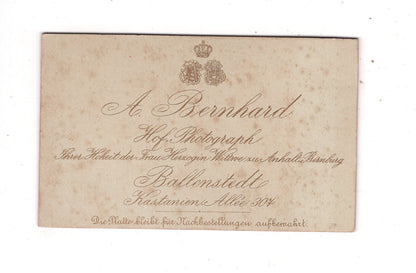 A. Bernhard
Hof-Photograph
Ihrer Hoheit der Frau Herzogin Wittwe zu Anhalt-Bernburg
Ballenstedt
Kastanien Allée 307
Die Platte bleibt für Nachbestellungen aufbewahrt.